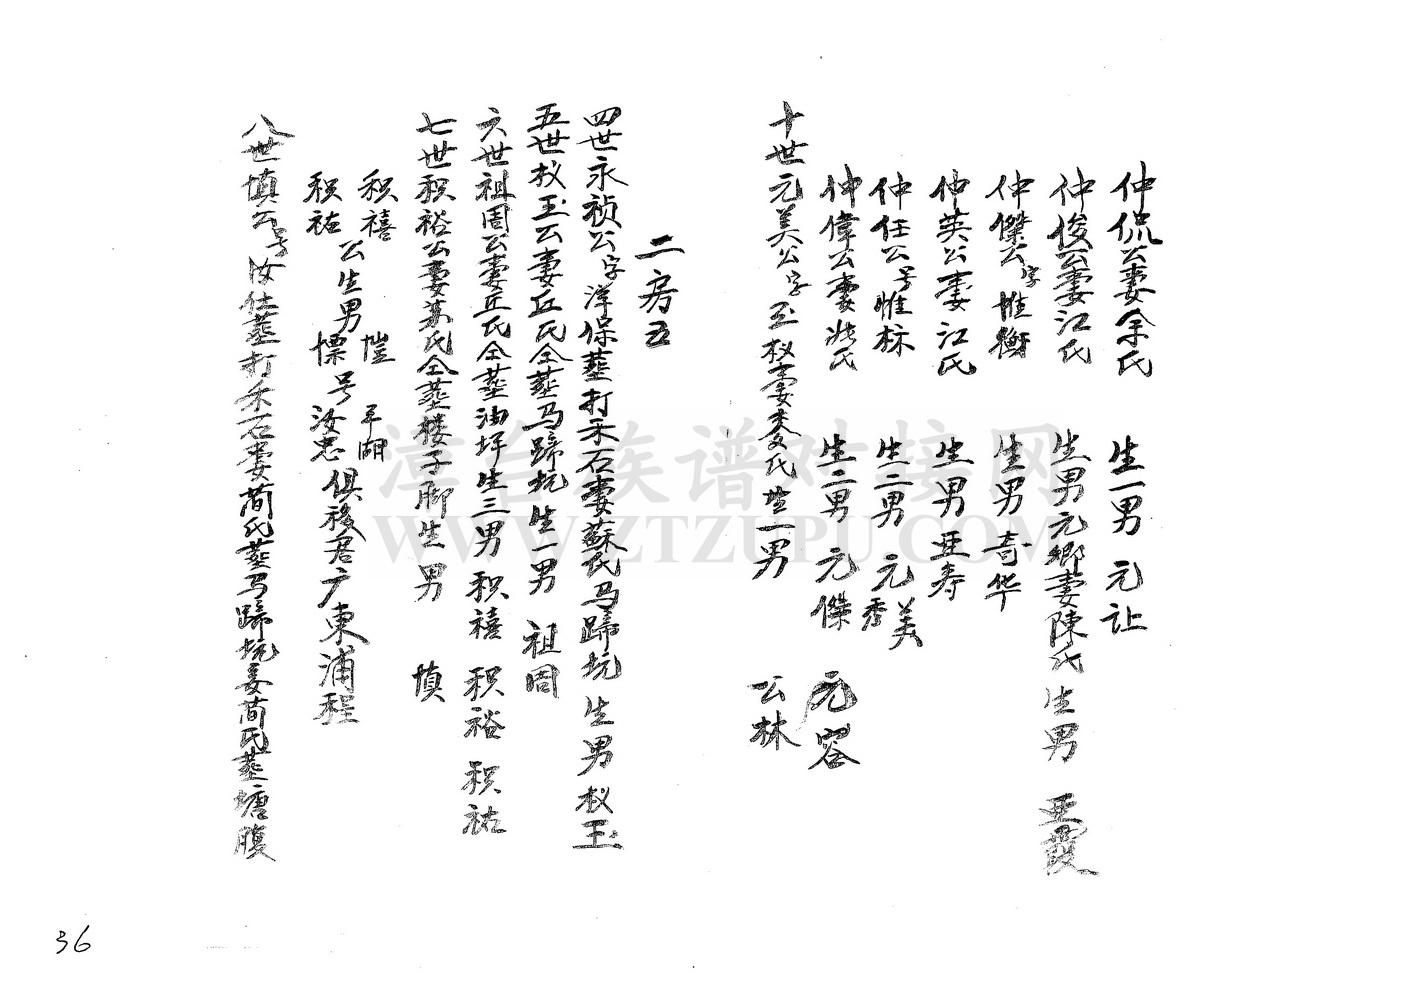 仲侃公妻余氏 生一男 元让
仲俊公妻江氏 生男元鄉妻陳氏 生男 亚霞
仲傑公字惟衡 生男 奇华
仲英公妻江氏 生男 亚寿
仲任公号惟标 生二男 元美 元秀
仲偉公妻 氏 生二男 元傑 元容
十世元美公字玉 妻 氏 生一男 公林
二房五
四世永祯公字淳保葬打禾石妻蘇氏马蹄坑 生男权玉
五世权玉公妻丘氏仝葬马蹄坑生一男 祖周
六世祖周公妻丘氏仝葬油坪生三男 积禧 积裕 积祐
七世积裕公妻苏氏仝葬楼子脚生男 慎
积禧 积祐 公生男 恺 慓 号 平湖 汝忠 俱後居广東浦程
八世慎公号汝仕葬打禾石妻简氏葬马蹄坑妾简氏葬塘腹
漳台族谱对接网
WWW.ZTZUPU.COM
36